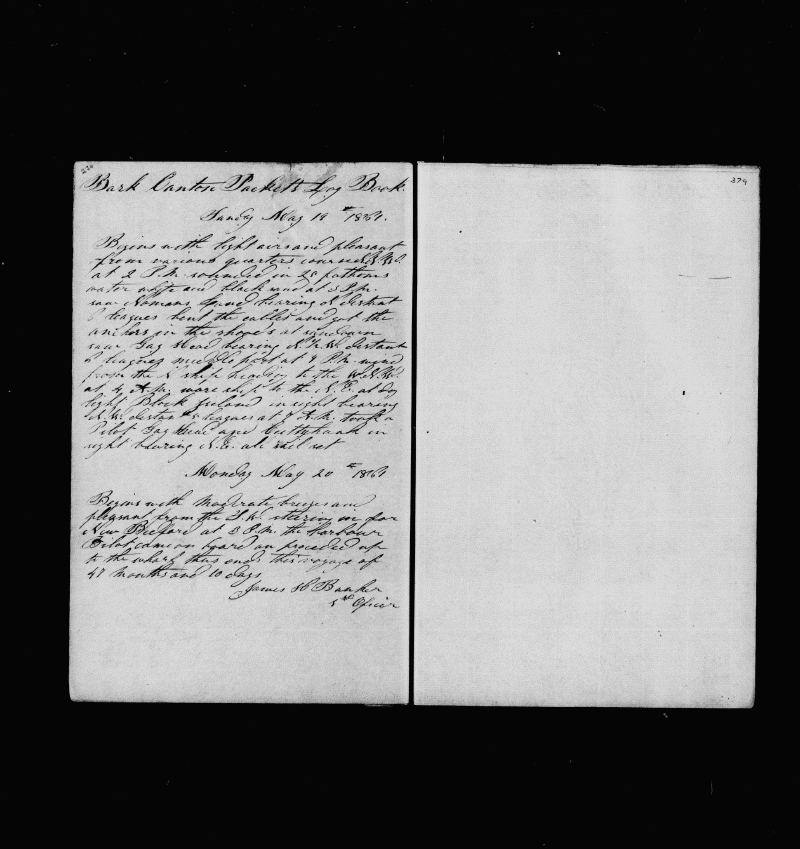 Bark Canton Packett Log Book.
Sunday May 19th 1861.
Begins with light airs and pleasant
from various quarters course
at 2 P.M. sounded in 25 fathoms
water and black mud at 3 P.M.
saw Nomans land bearing N distant
leagues bent the cables and got the
anchors on the at sundown
saw Gay Head bearing distant
leagues middle part at 9 P.M. wind
from the N ship heading to the
at 4 A.M. ship to the N.E. at day
light Block Island in sight bearing
N.W. distant 5 leagues at A.M. took a
Pilot Gay Head and Cuttyhunk in
sight bearing N.E. all sail set
Monday May 20th 1861
Begins with Modrate breezes and
pleasant from the S.W. stering in for
New Bedford at 3 P.M. the harbour
Pilot came on board an proceded up
to the wharf thus ends this voyage of
47 Months and 10 days
James H Bunker
Oficer
379